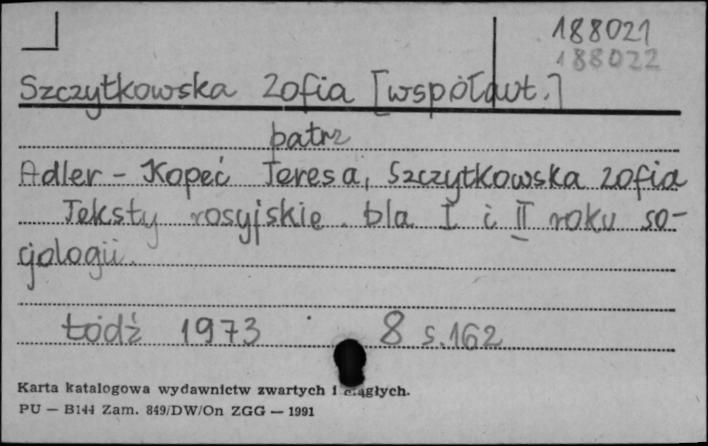 188021
188022
Szczytkowska Zofia [współaut.]
patrz
Adler - Kopeć Teresa, Szczytkowska Zofia
Teksty rosyjskie. Dla I i II roku so-
cjologii.
Łódź 1973 8 s. 162
Karta katalogowa wydawnictw zwartych i ciągłych.
PU — B144 Zam. 849/DW/On ZGG — 1991